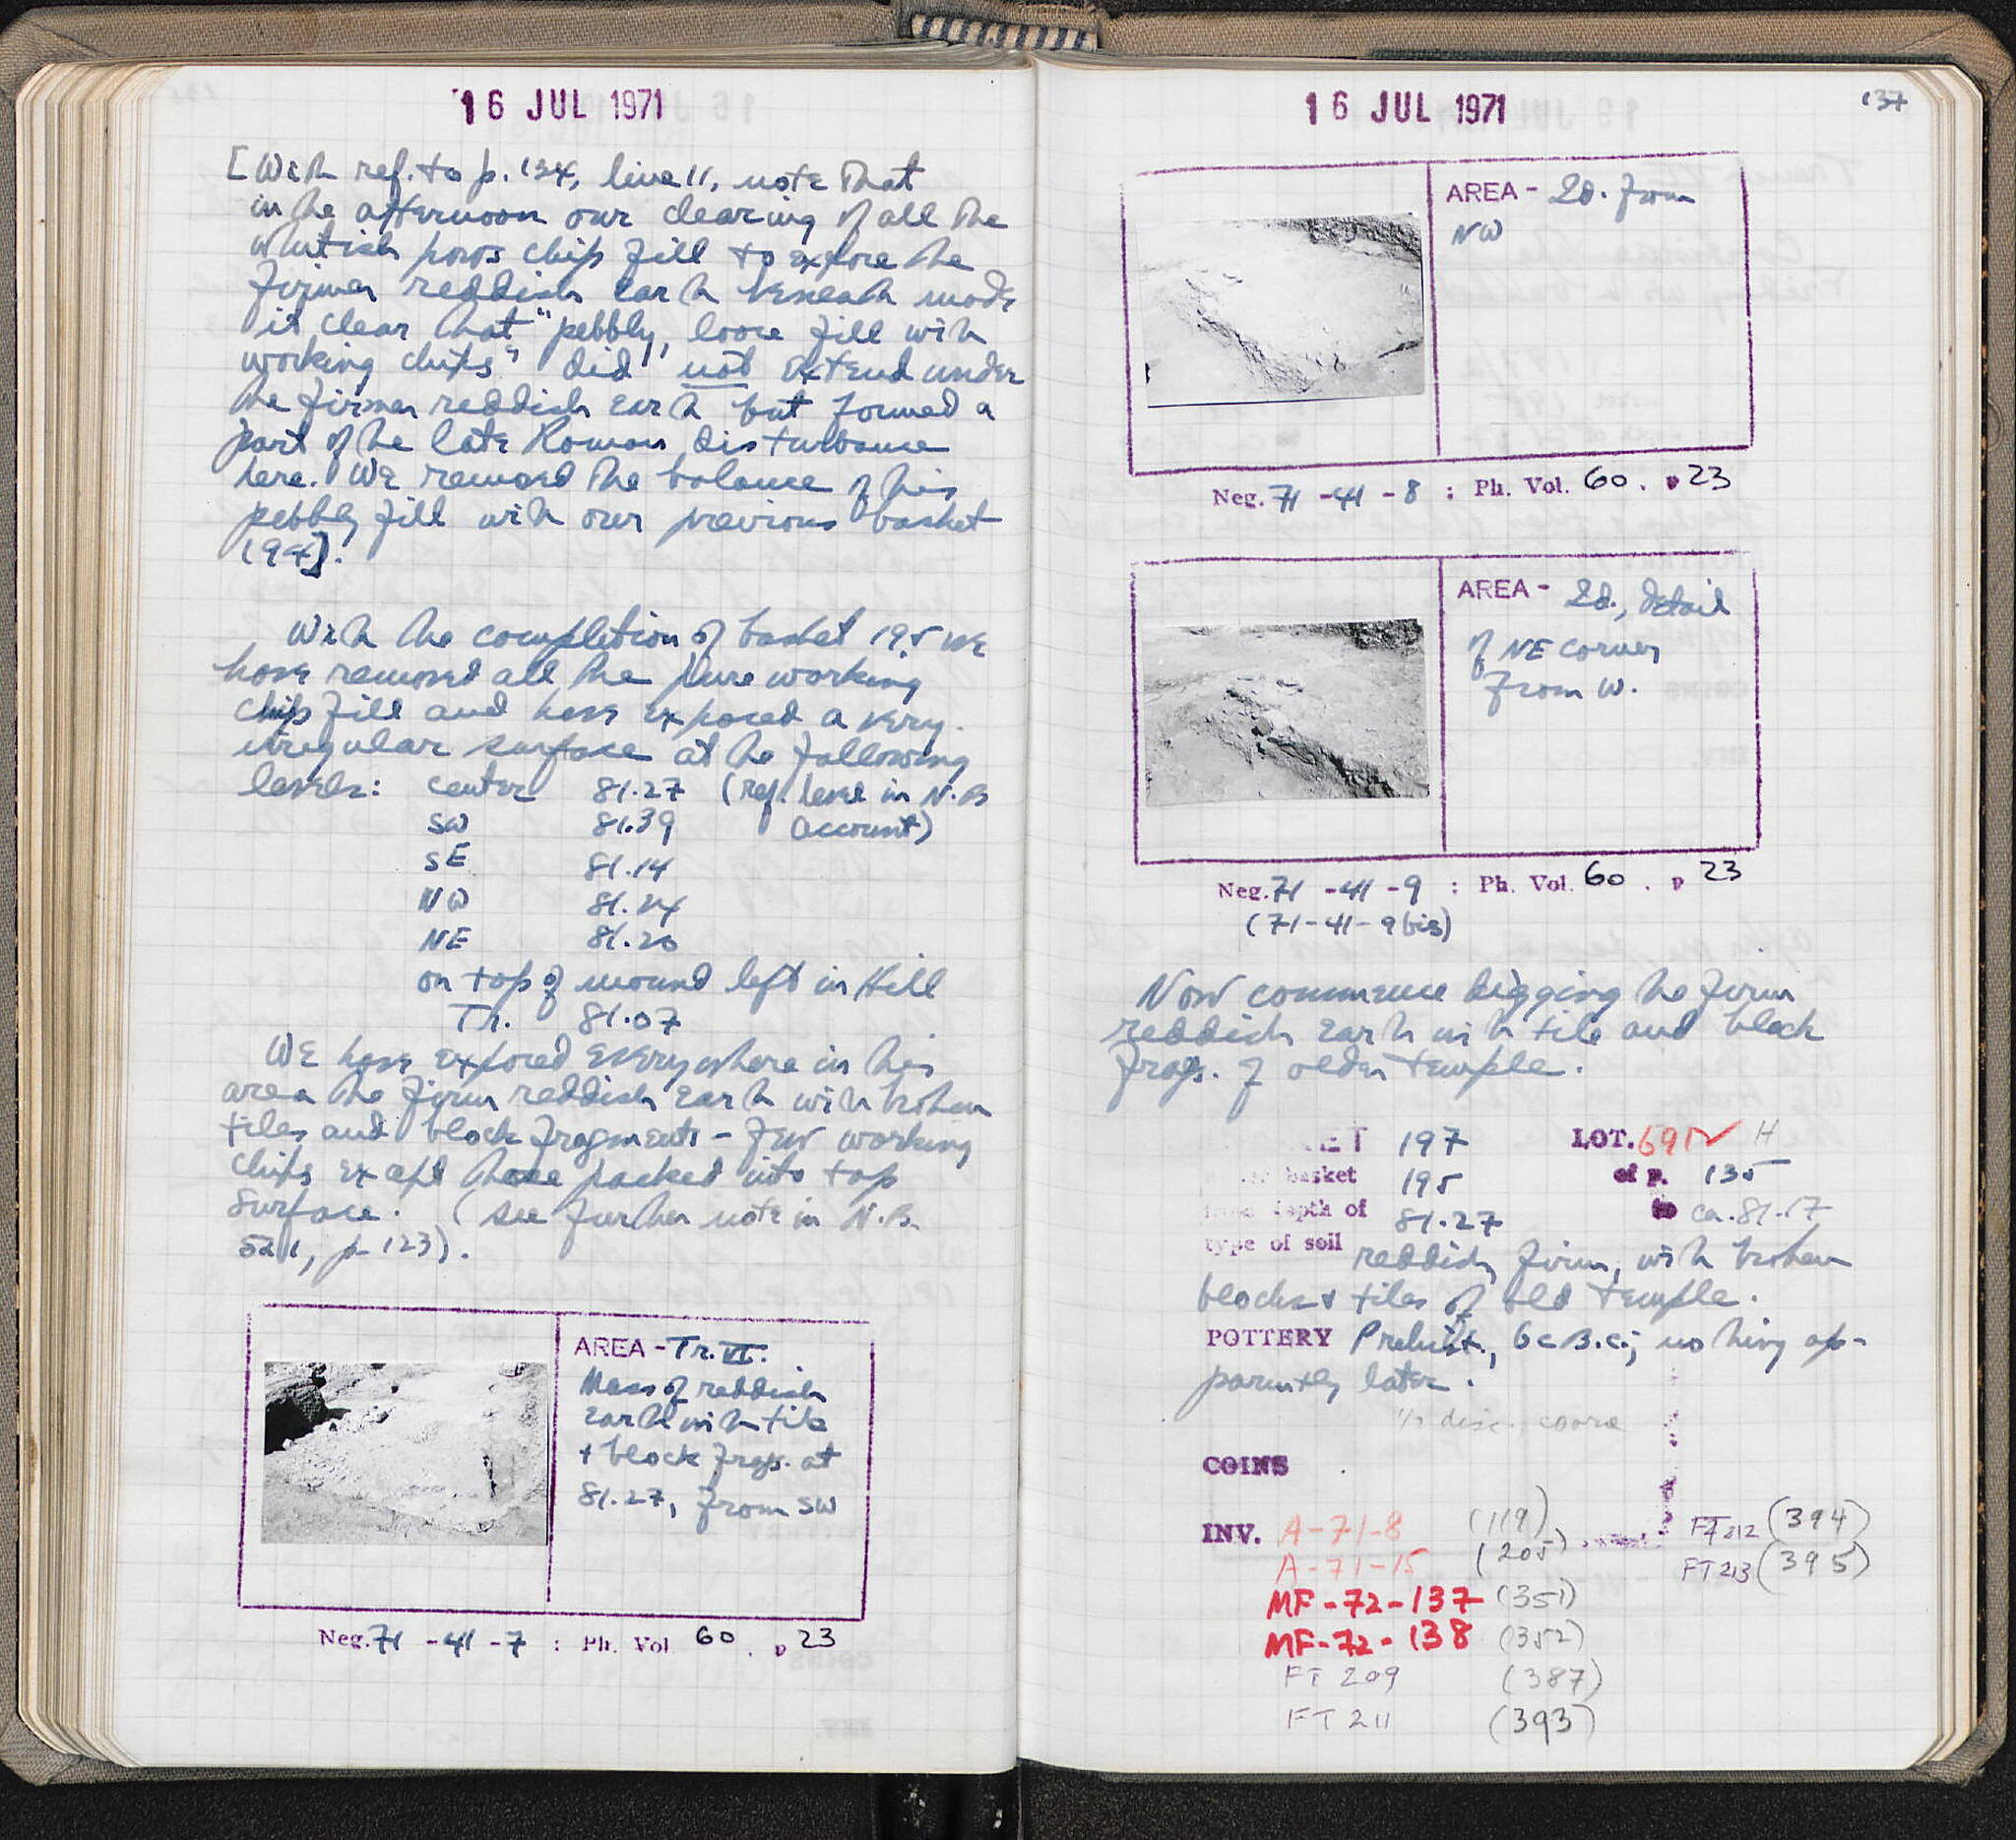 16 JUL 1971
[With ref. to p. 134, line 11, note that
in the afternoon our clearing of all the
whitish poros chip fill to expose the
firmer reddish earth beneath made
it clear that "pebbly, loose fill with
working chips" did not extend under
the firmer reddish earth but formed a
part of the late Roman disturbance
here. We removed the balance of this
pebbly fill with our previous basket
194].
With the completion of basket 195 we
have removed all the pure working
chip fill and have exposed a very
irregular surface at the following
levels: center 81.27 (ref. level in N.B.
SW 81.39 account)
SE 81.14
NW 81.24
NE 81.20
on top of mound left in Hill
Tr. 81.07
We have exposed everywhere in this
area the firm reddish earth with broken
tiles and block fragments - few working
chips except those packed into top
surface. (see further note in N.B.
521, p. 123).
AREA - Tr. VI.
Mass of reddish
earth with tile
+ block frags. at
81.27, from SW
Neg. 71 - 41 - 7 : Ph. Vol. 60 . p 23
16 JUL 1971
137
AREA - Id. from
NW
Neg. 71 - 41 - 8 : Ph. Vol. 60 . p 23
AREA - Id., detail
of NE corner
from W.
Neg. 71 - 41 - 9 : Ph. Vol. 60 . p 23
(71-41-9 bis)
Now commence digging the firm
reddish earth with tile and block
frags. of older temple.
197 LOT. 691 H
basket 195 of p. 135
depth of 81.27 to ca. 81.17
type of soil reddish firm, with broken
blocks + tiles of old temple.
POTTERY Prehist., 6c B.C.; nothing ap-
parently later.
disc. coarse
COINS
INV. A-71-8 (119) FT 212 (394)
A-71-15 (205) FT 213 (395)
MF-72-137 (351)
MF-72-138 (352)
FT 209 (387)
FT 211 (393)